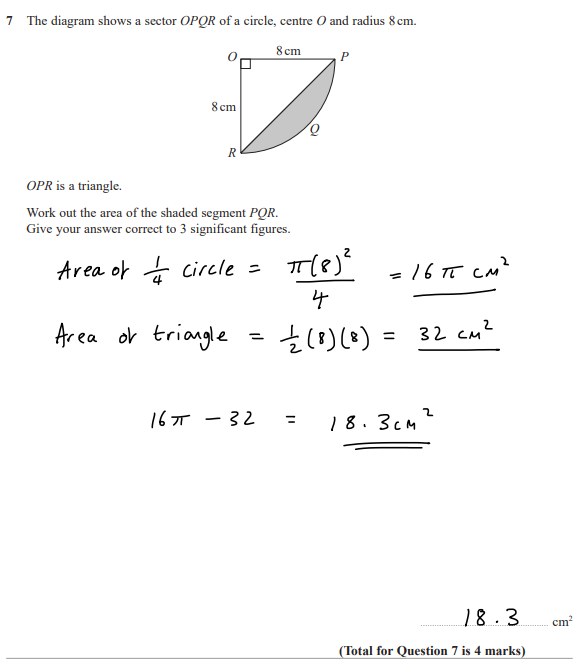 7 The diagram shows a sector OPQR of a circle, centre O and radius 8 cm.
8 cm
O
P
8 cm
Q
R
OPR is a triangle.
Work out the area of the shaded segment PQR.
Give your answer correct to 3 significant figures.
Area of 1/4 circle = π(8)²/4 = 16π cm²
Area of triangle = 1/2 (8)(8) = 32 cm²
16π − 32 = 18.3cm²
18.3 cm²
(Total for Question 7 is 4 marks)